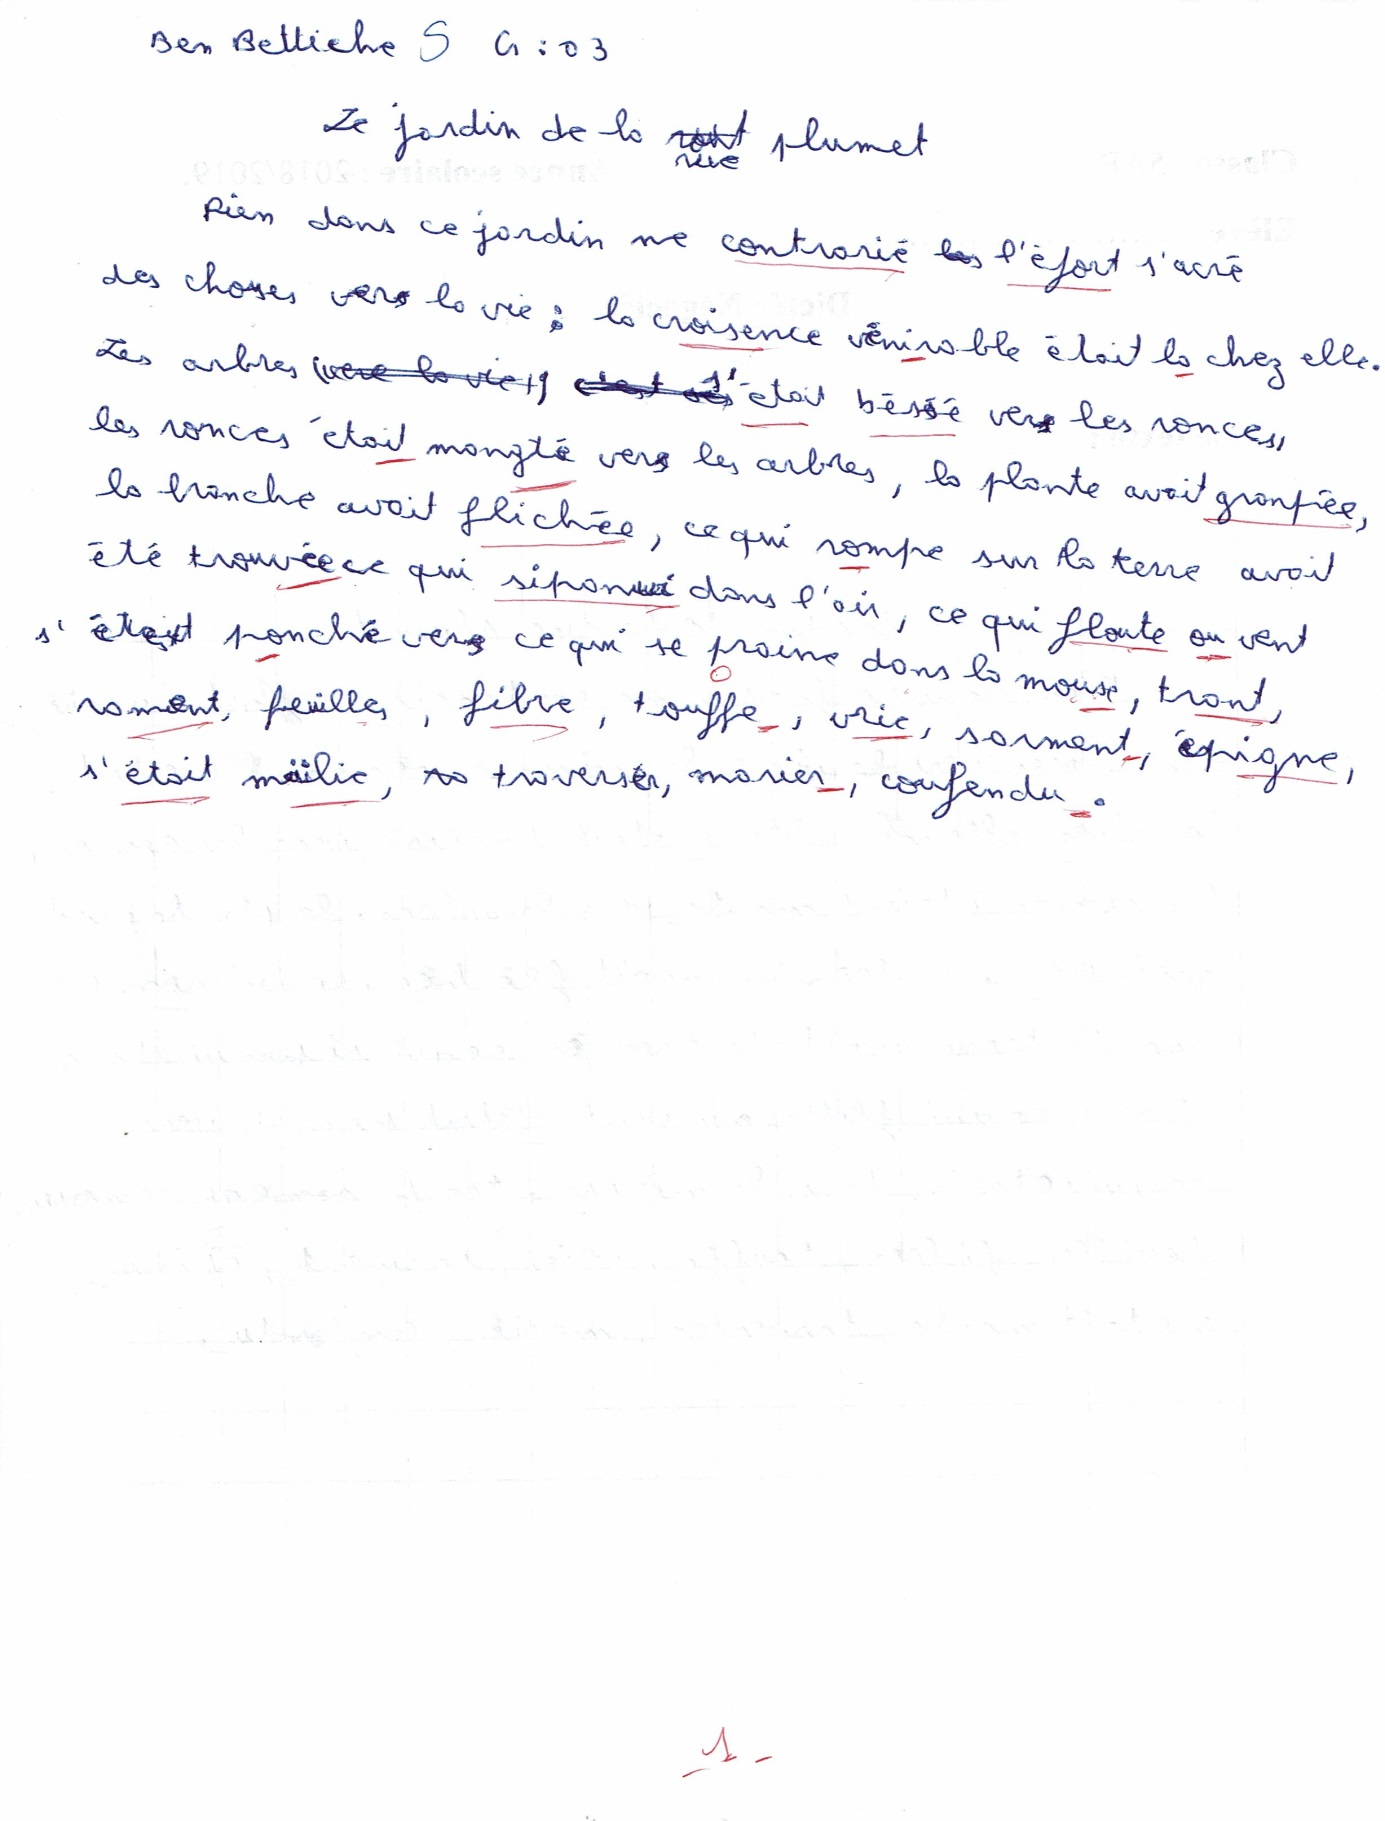 Ben Bettiche S G : 03
Le jardin de la rue plumet
Rien dans ce jardin ne contrarié l'éfort s'acré
des choses vers la vie ; la croisence vénirable était la chez elle.
Les arbres s'était béssé vers les ronces,
les ronces était mongté vers les arbres, la plante avait gronpiée,
la branche avait flichée, ce qui rompe sur la terre avait
été trouvée ce qui siponui dans l'air, ce qui floute ou vent
s'était ponché vers ce qui se praine dans la mouse, tront,
roment, feuilles, fibre, touffe, vric, sorment, épigne,
s'était mailic, traverser, marier, confendu.
1